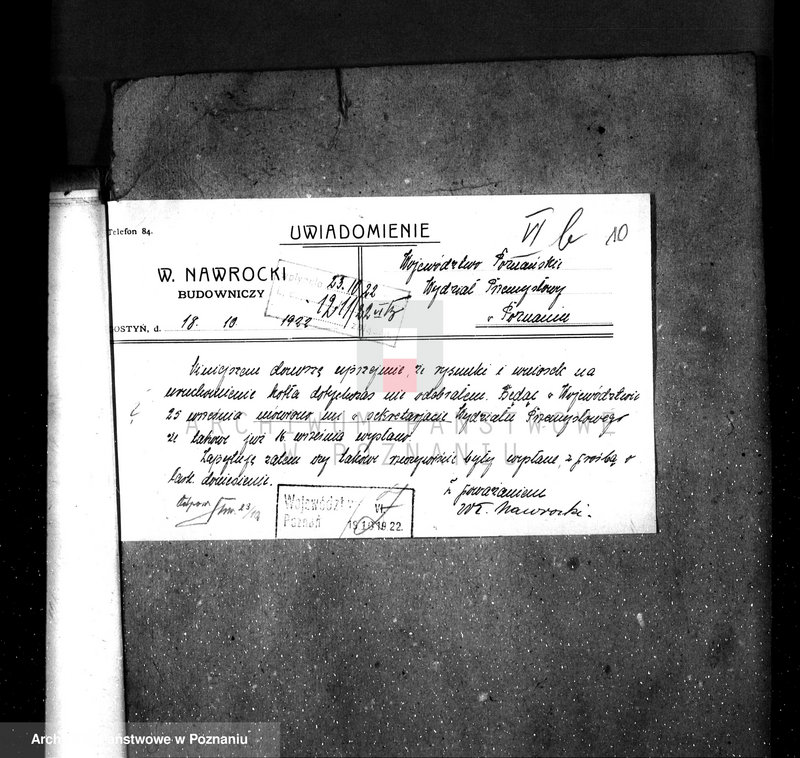 Telefon 84.
UWIADOMIENIE
VI b 10
W. NAWROCKI
BUDOWNICZY
Województwo Poznańskie
Wydział Przemysłowy
w Poznaniu
23.10.22
12.11/22
OSTYŃ, d. 18. 10 1922
Niniejszem donoszę uprzejmie, że rysunki i wniosek na
uruchomienie kotła dotychczas nie odebrałem. Będąc w Województwie
25 września mówiono mi w sekretariacie Wydziału Przemysłowego
że takowe już 16 września wysłano.
Zapytuję zatem czy takowe rzeczywiście były wysłane, z prośbą o
łask. doniesienie.
Z poważaniem
Wł. Nawrocki.
23/10
Województwo
Poznań
VI
19 10 19 22.
ARCHIWUM PAŃSTWOWE
W POZNANIU
Archiwum Państwowe w Poznaniu